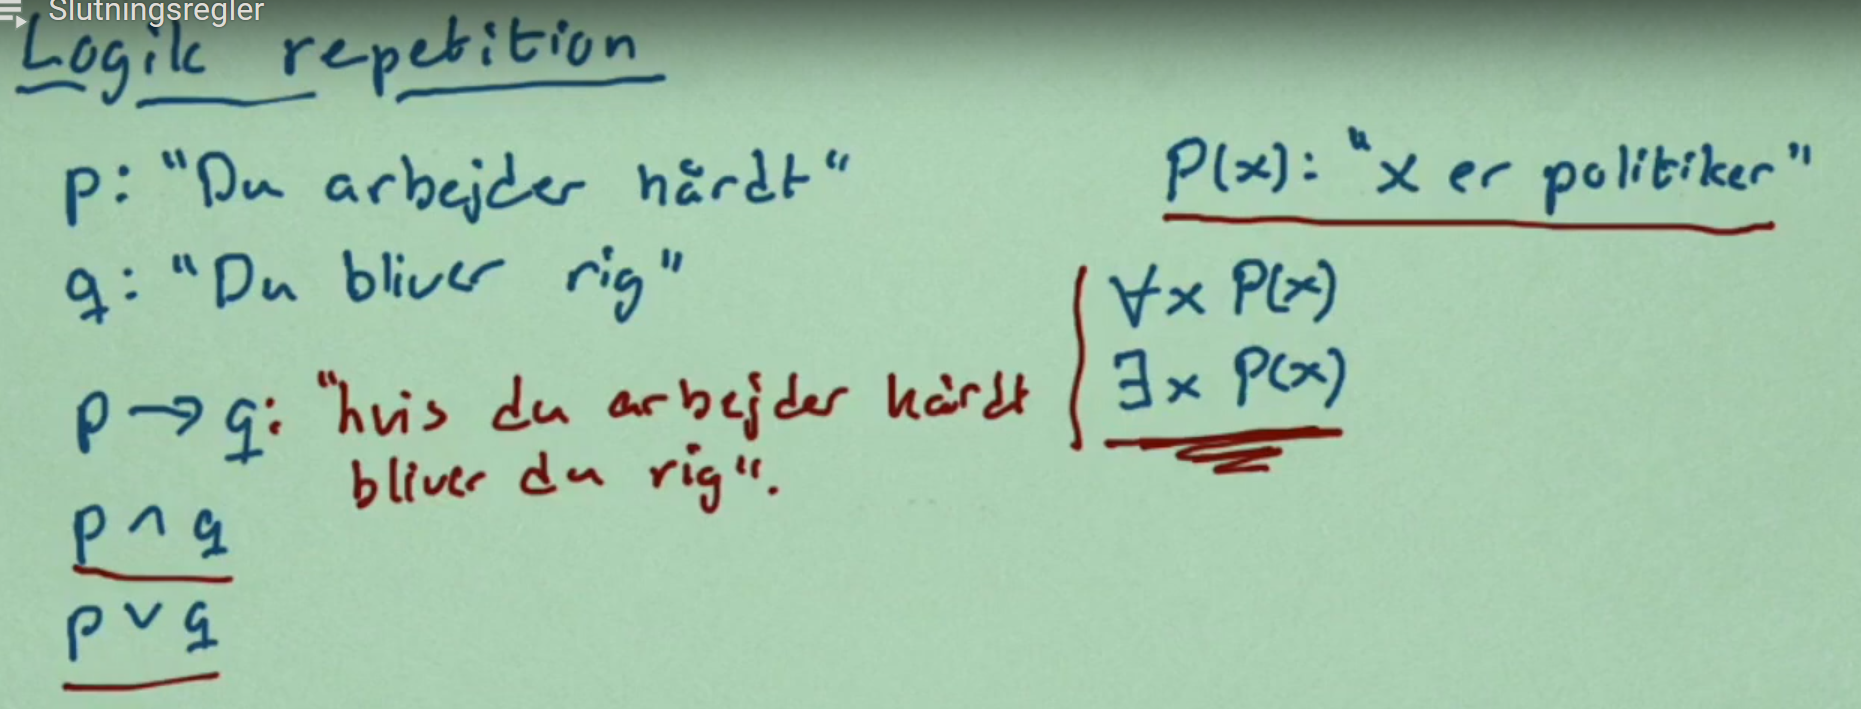 Slutningsregler
Logik repetition
p: "Du arbejder hårdt"
q: "Du bliver rig"
p → q: "hvis du arbejder hårdt
bliver du rig".
p ∧ q
p ∨ q
P(x): "x er politiker"
∀x P(x)
∃x P(x)